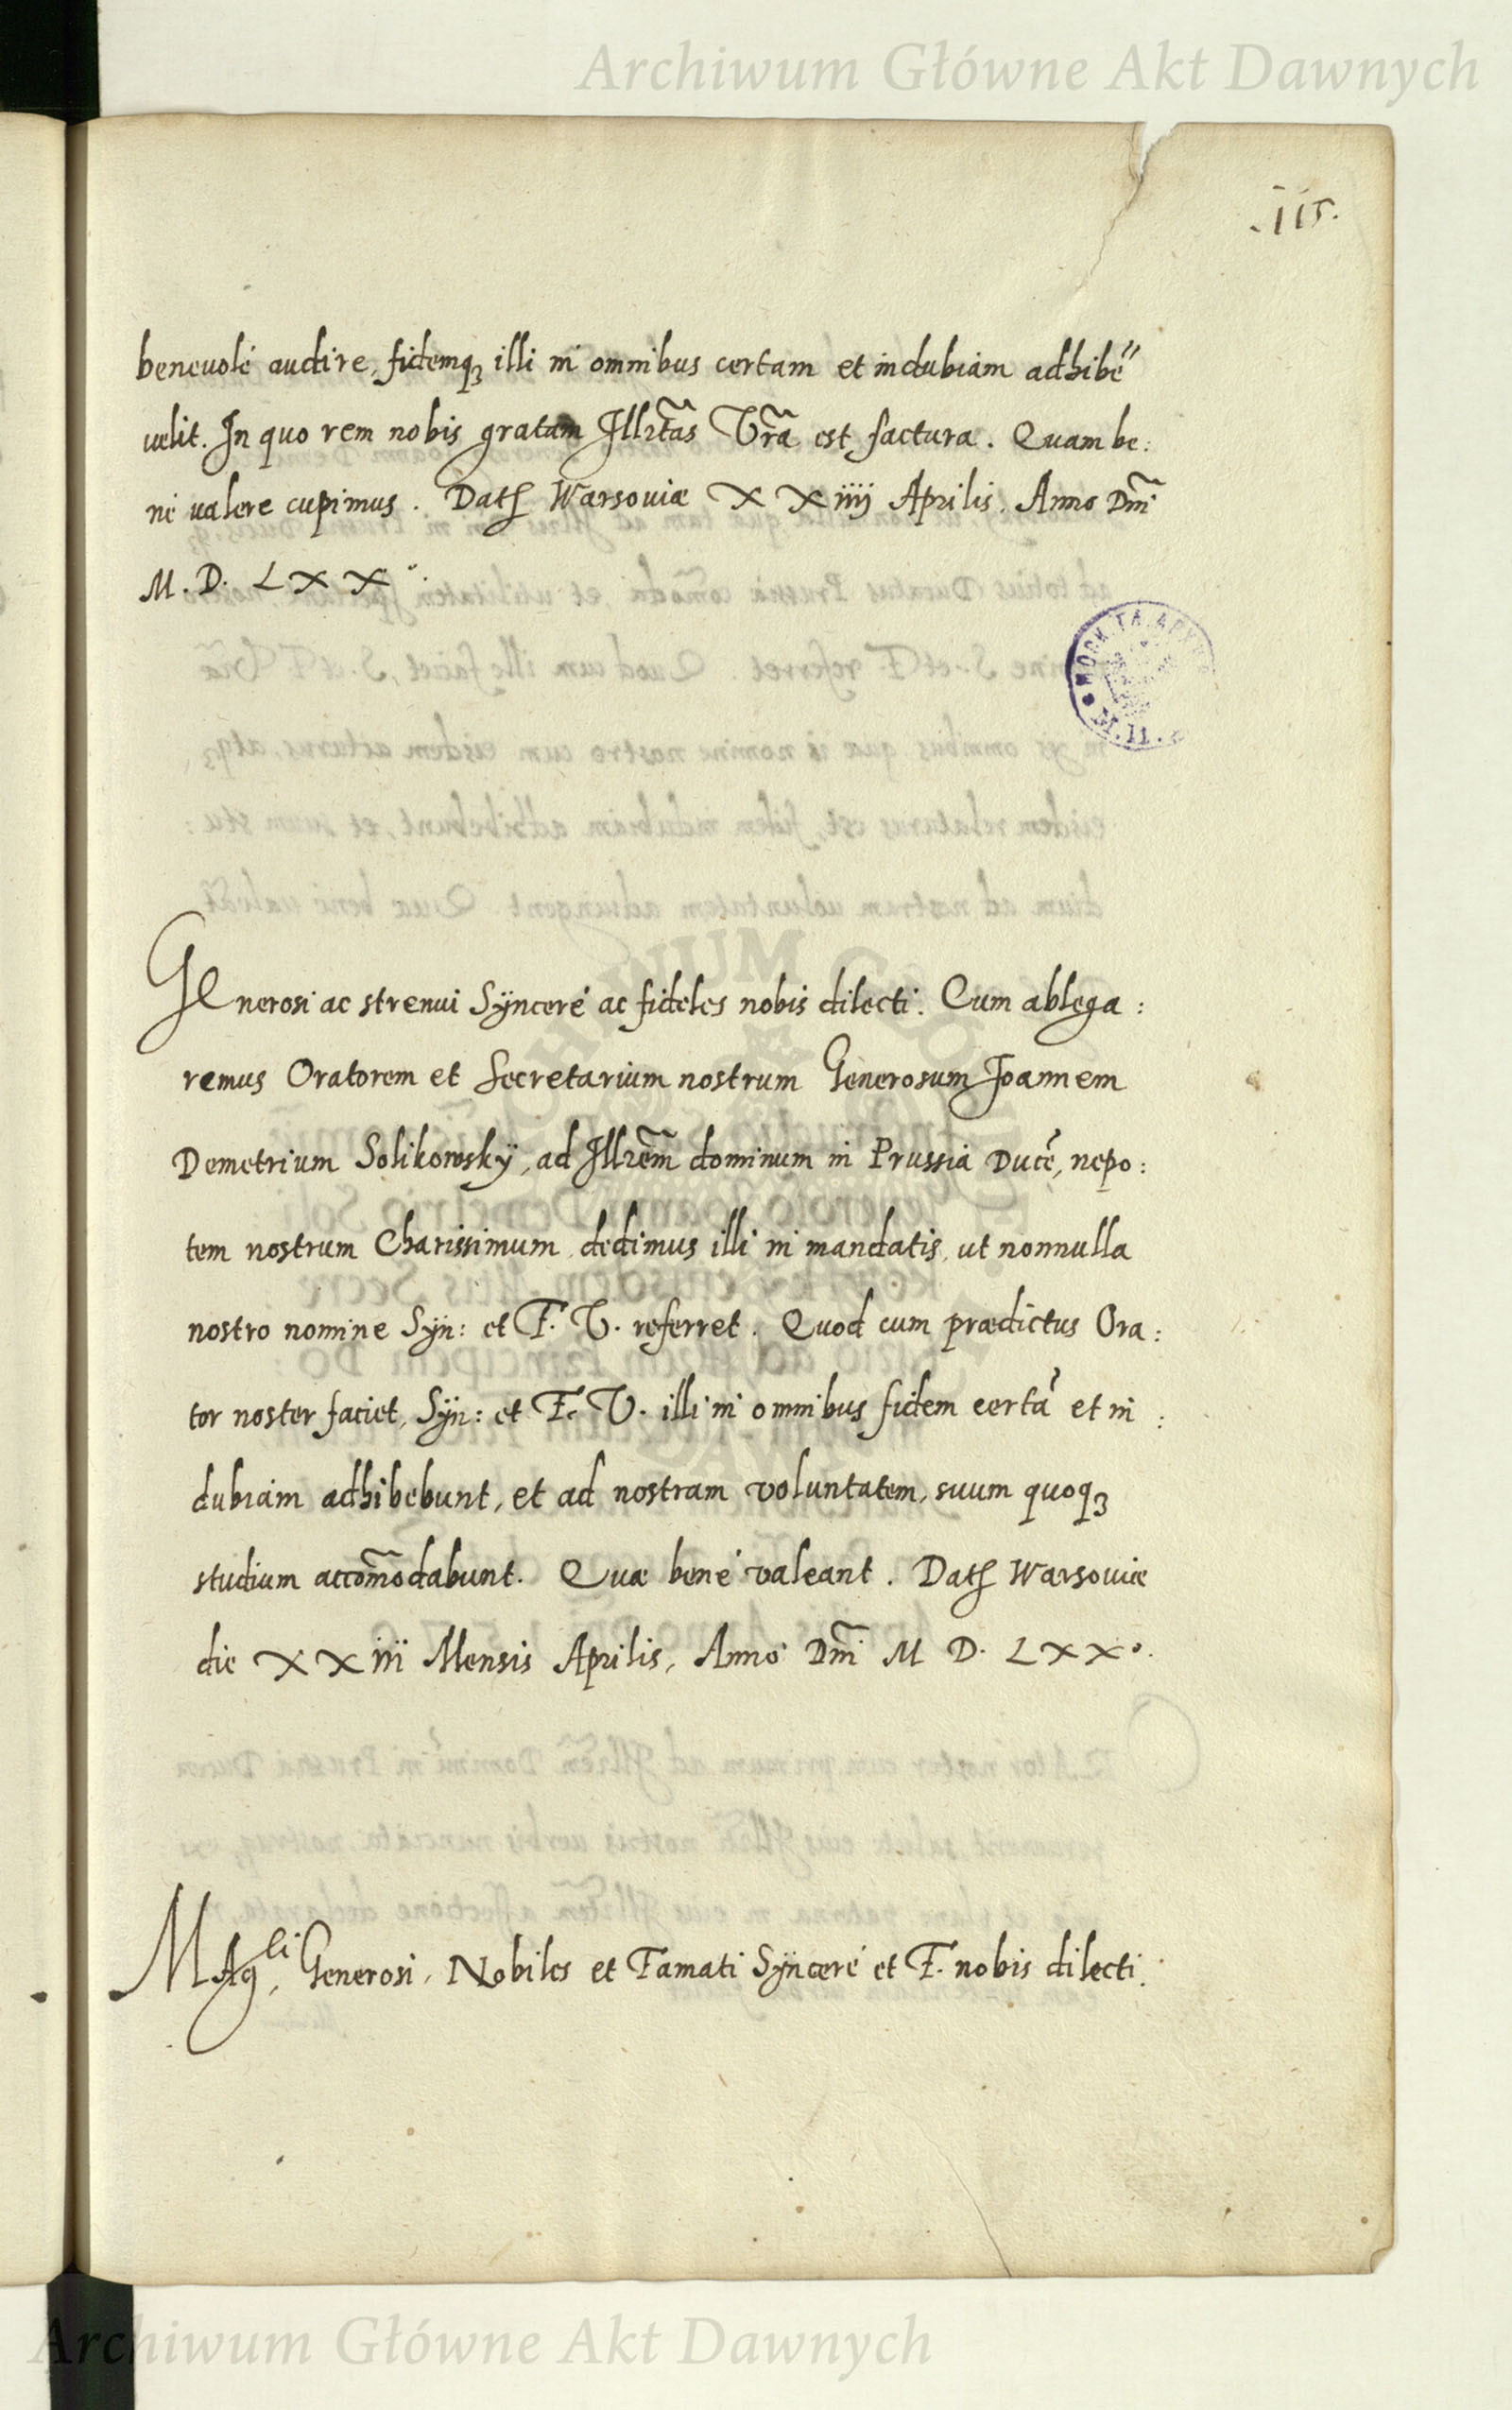 Archiwum Główne Akt Dawnych
.115.
beneuolè audire, fidemq3 illi in omnibus certam et indubiam adhibē
uelit. In quo rem nobis gratam Illrt̃as Vr̃a est factura. Quam be:
nè ualere cupimus. Datꝭ Warsouiæ XXiiij Aprilis. Anno Dñi
M. D. LXX°.
GEnerosi ac strenui Sÿncerè ac fideles nobis dilecti. Cum ablega:
remus Oratorem et Secretarium nostrum Generosum Joannem
Demetrium Solikowskÿ, ad Illrem̃ dominum in Prussia Ducē, nepo:
tem nostrum Charissimum, dedimus illi in mandatis, ut nonnulla
nostro nomine Sÿn: et F. V. referret. Quod cum prædictus Ora:
tor noster faciet, Sÿn: et F. V. illi in omnibus fidem certā et in:
dubiam adhibebunt, et ad nostram voluntatem, suum quoq3
studium accom̃odabunt. Quæ benè valeant. Datꝭ Warsouiæ
die XXiiii Mensis Aprilis, Anno Dñi M D. LXX°.
MAgci, Generosi, Nobiles et Famati Sÿncerè et F. nobis dilecti.
Archiwum Główne Akt Dawnych